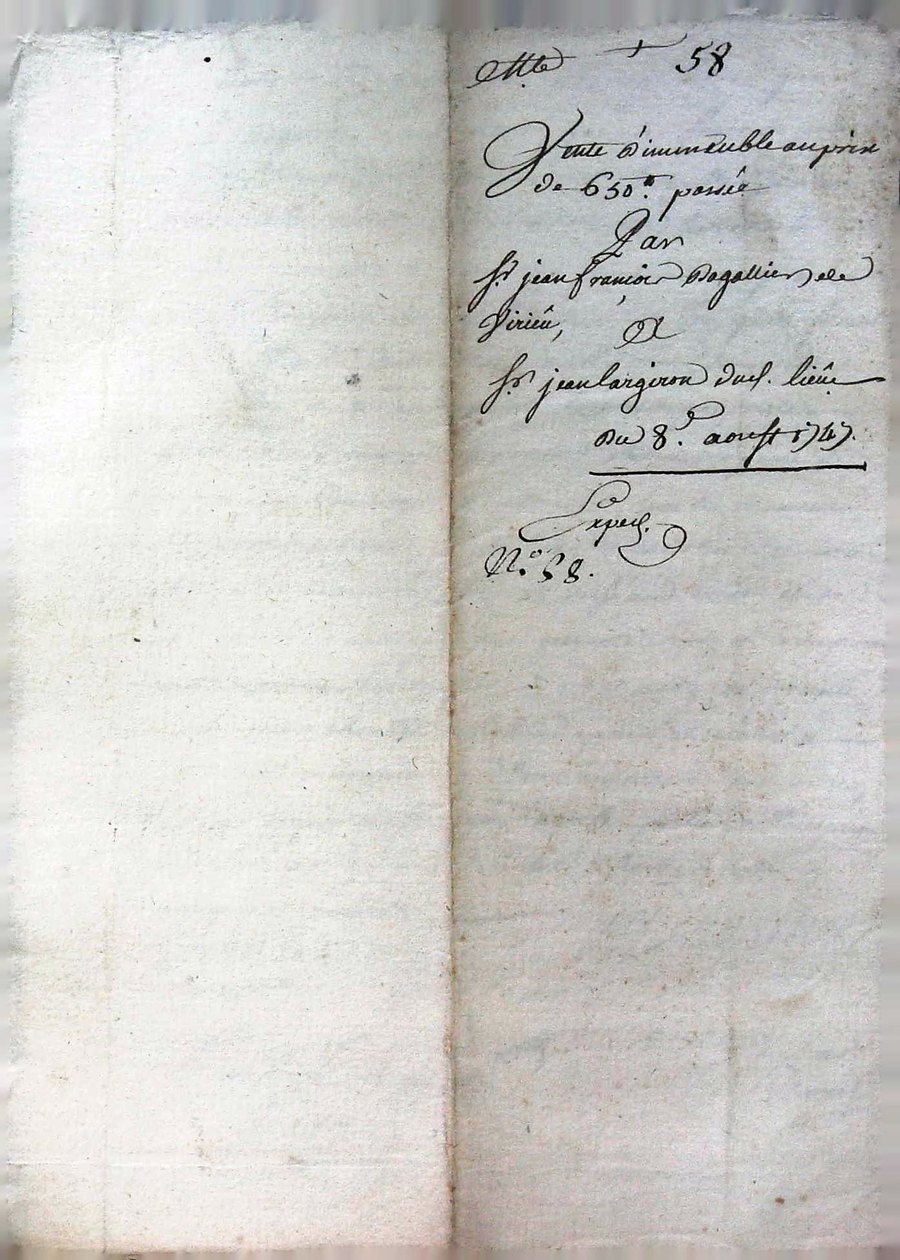 58
Vente d'immeuble au prix
de 650.tt passée
Par
Sr. jean francois Pagallier de
Virieü, Et
Sr. jean largiron dud. lieüe
Du 8.e aoust 1747.
Exped.
N.o 58.